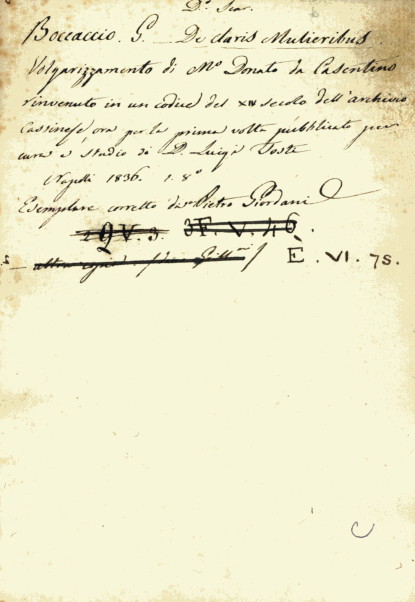 Dr. Scar.
Boccaccio. G. — De claris Mulieribus
Volgarizzamento di Mo Donato da Casentino
rinvenuto in un codice del XIV secolo dell'archivio
Cassinese, ora per la prima volta pubblicato per
cura e studio di D. Luigi Toste
Napoli 1836. 1. 8°
Esemplare corretto da Pietro Giordani
Q V. 3. 3F. V. 46.
altra copia
E. VI. 75.
C